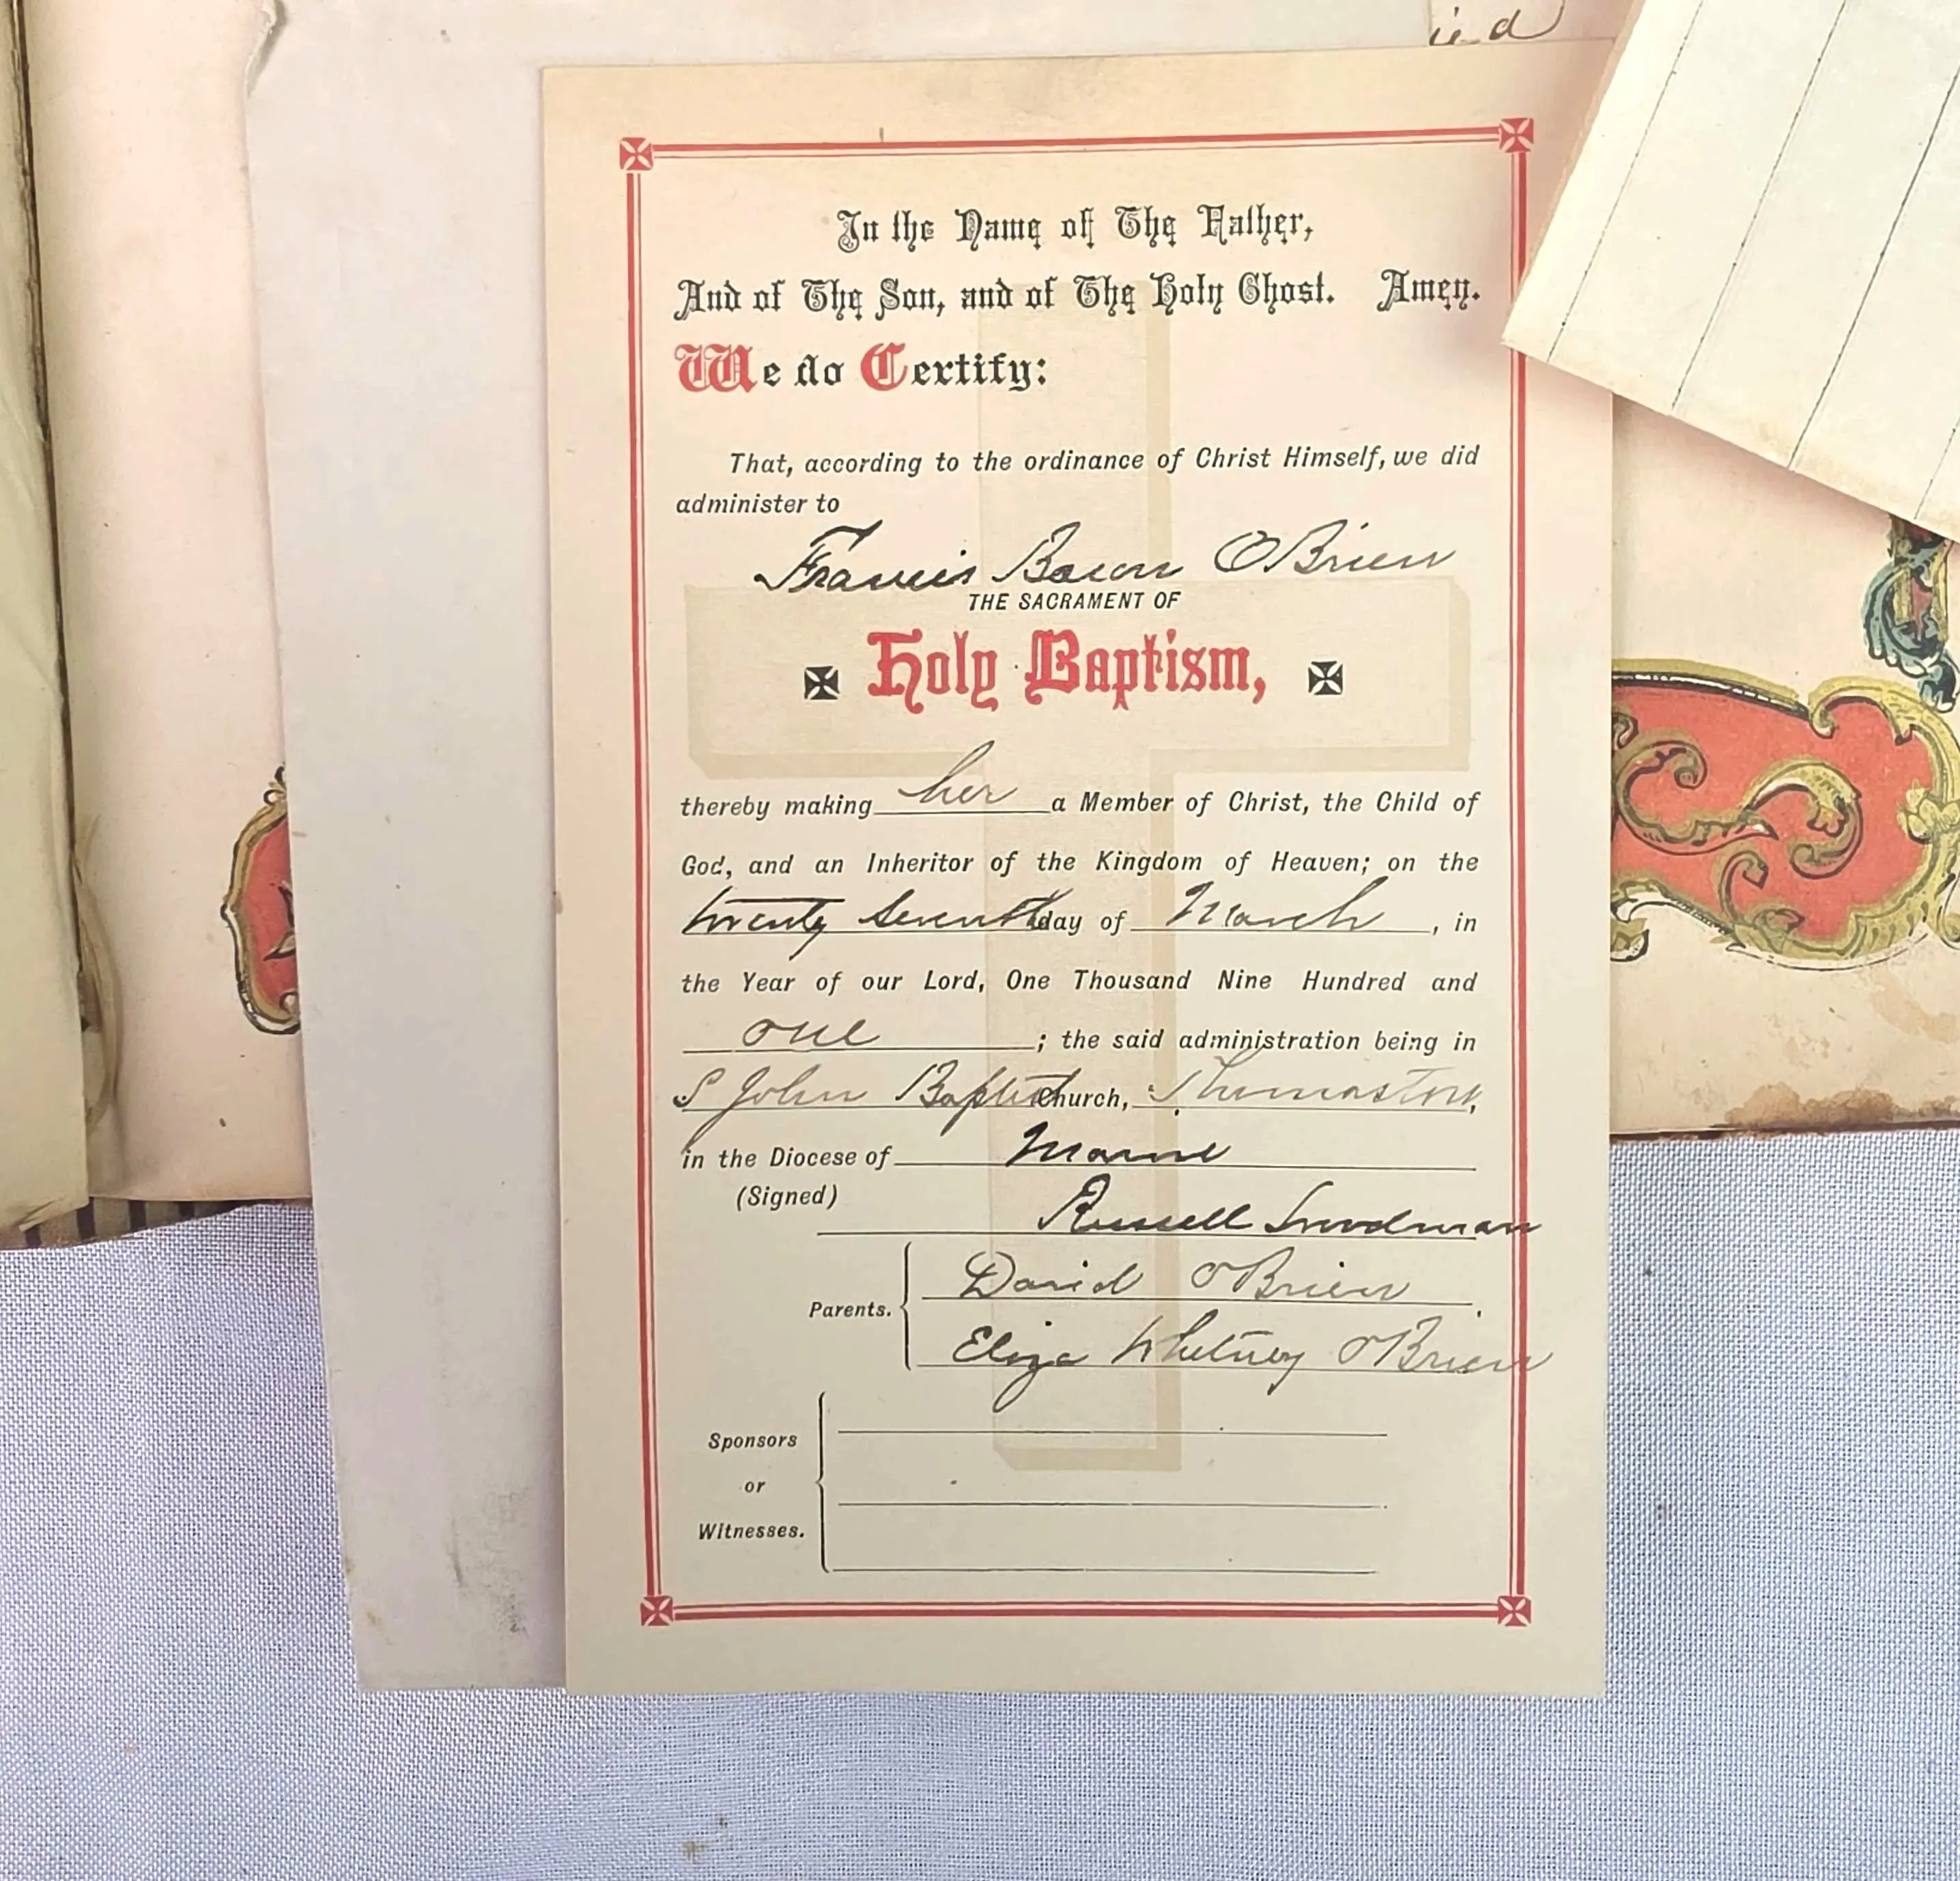 ied
In the Name of The Father,
And of The Son, and of The Holy Ghost. Amen.
We do Certify:
That, according to the ordinance of Christ Himself, we did
administer to
Francis Bacon O'Brien
THE SACRAMENT OF
Holy Baptism,
thereby making her a Member of Christ, the Child of
God, and an Inheritor of the Kingdom of Heaven; on the
twenty seventh day of March, in
the Year of our Lord, One Thousand Nine Hundred and
one; the said administration being in
S John Baptist Church, Thomaston,
in the Diocese of Maine
(Signed)
Russell Woodman
David O'Brien
Parents.
Eliza Whitney O'Brien
Sponsors
or
Witnesses.